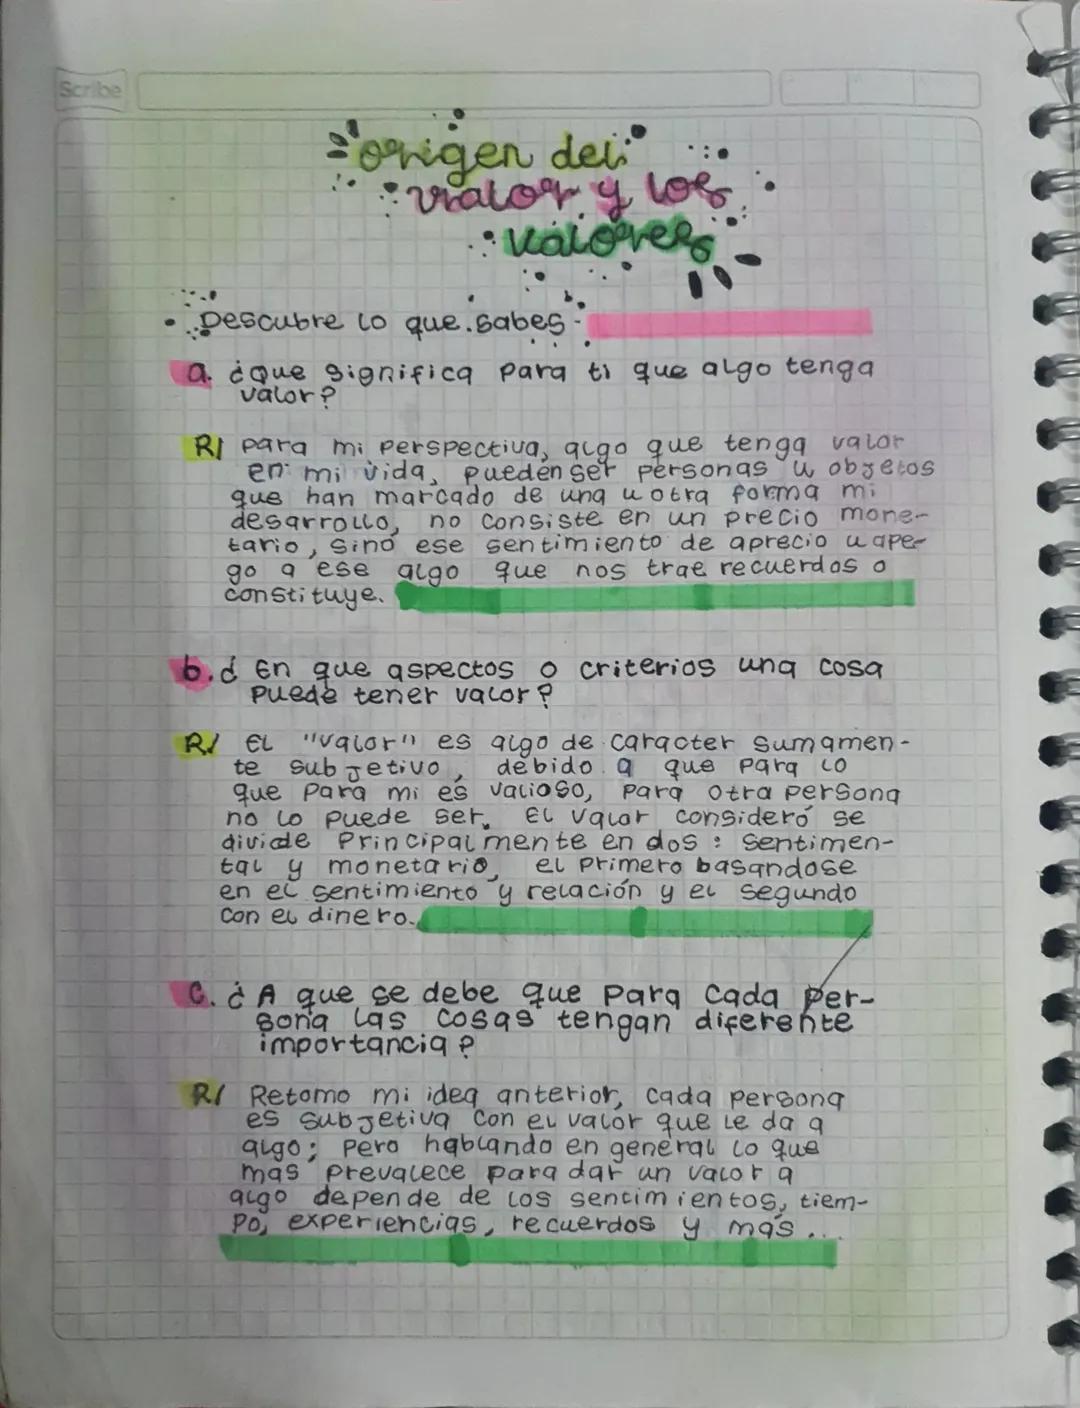 Scribe
origen del
valor y los
valores
• Descubre lo que sabes -
a. ¿que significa para ti que algo tenga
valor?
R/ para mi perspectiva, algo que tenga valor
en mi vida, pueden ser personas u objetos
que han marcado de una u otra forma mi
desarrollo, no consiste en un precio mone-
tario, sino ese sentimiento de aprecio u ape-
go a ese algo que nos trae recuerdos o
constituye.
b. ¿ En que aspectos o criterios una cosa
puede tener valor?
R/ El "valor" es algo de caracter sumamen-
te subjetivo, debido a que para lo
que para mi es valioso, para otra persona
no lo puede ser. El valor consideró se
divide principalmente en dos: sentimen-
tal y monetario, el primero basandose
en el sentimiento y relación y el segundo
con el dinero.
C. ¿ A que se debe que para cada per-
sona las cosas tengan diferente
importancia?
R/ Retomo mi idea anterior, cada persona
es subjetiva con el valor que le da a
algo; pero hablando en general lo que
mas prevalece para dar un valor a
algo depende de los sentimientos, tiem-
po, experiencias, recuerdos y más...